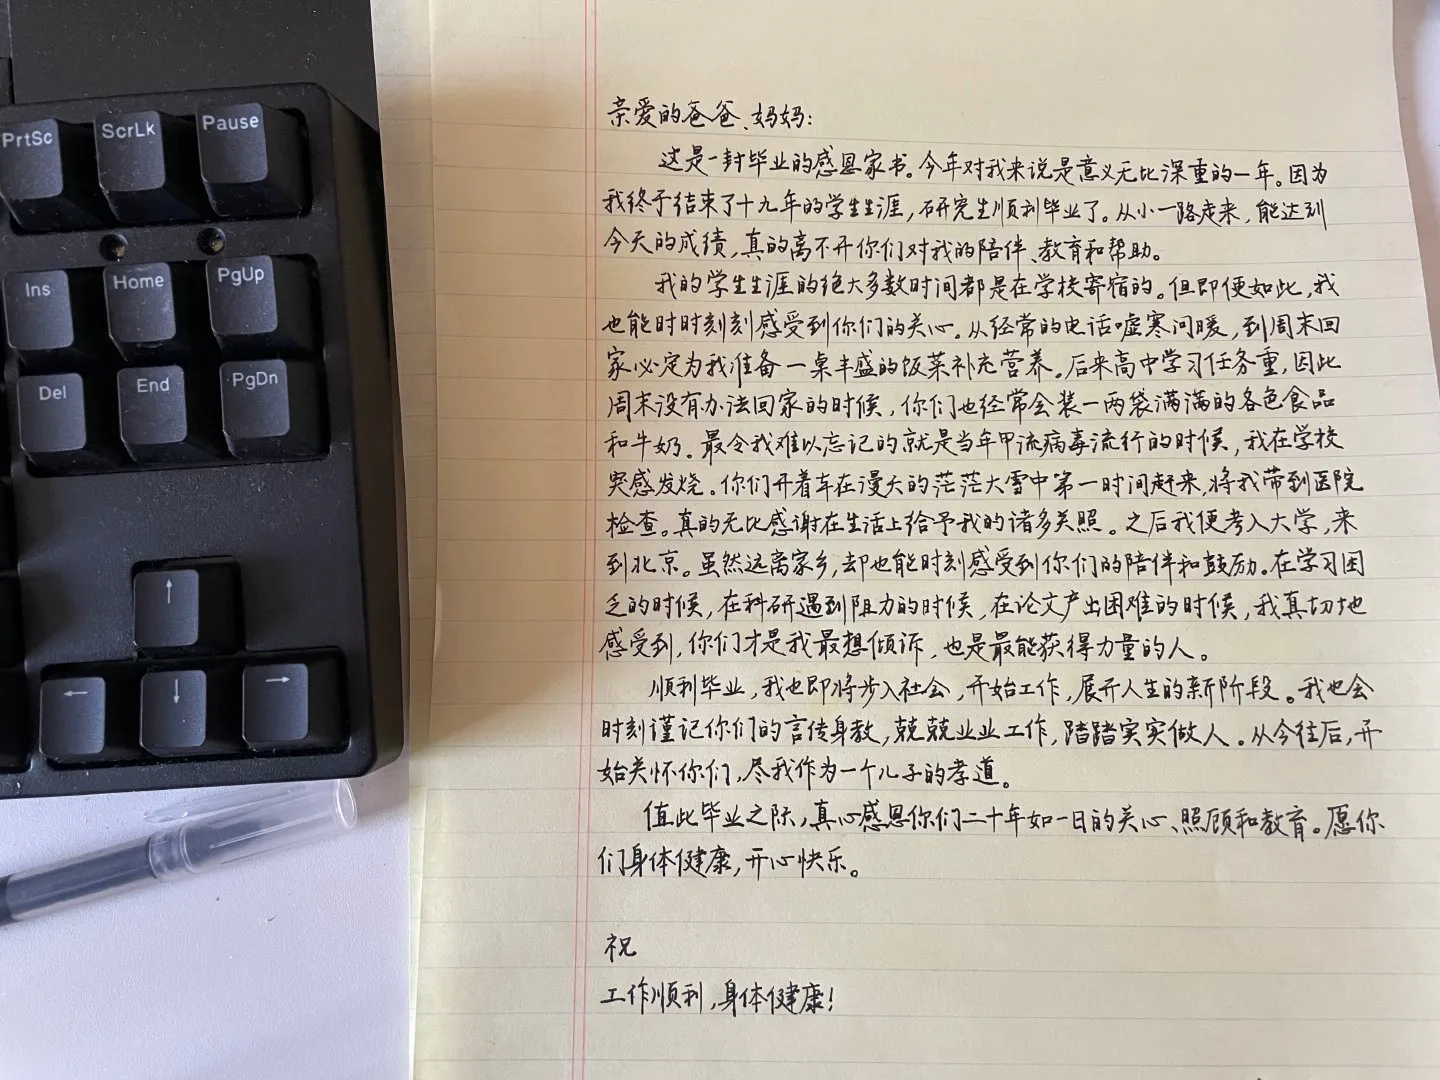 PrtSc ScrLk Pause
Ins Home PgUp
Del End PgDn
↑
← ↓ →
亲爱的爸爸、妈妈:
这是一封毕业的感恩家书。今年对我来说是意义无比深重的一年。因为
我终于结束了十九年的学生生涯,研究生顺利毕业了。从小一路走来,能达到
今天的成绩,真的离不开你们对我的陪伴、教育和帮助。
我的学生生涯的绝大多数时间都是在学校寄宿的。但即便如此,我
也能时时刻刻感受到你们的关心。从经常的电话嘘寒问暖,到周末回
家必定为我准备一桌丰盛的饭菜补充营养。后来高中学习任务重,因此
周末没有办法回家的时候,你们也经常会装一两袋满满的各色食品
和牛奶。最令我难以忘记的就是当年甲流病毒流行的时候,我在学校
突感发烧。你们开着车在漫天的茫茫大雪中第一时间赶来,将我带到医院
检查。真的无比感谢在生活上给予我的诸多关照。之后我便考入大学,来
到北京。虽然远离家乡,却也能时刻感受到你们的陪伴和鼓励。在学习困
乏的时候,在科研遇到阻力的时候,在论文产出困难的时候,我真切地
感受到,你们才是我最想倾诉,也是最能获得力量的人。
顺利毕业,我也即将步入社会,开始工作,展开人生的新阶段。我也会
时刻谨记你们的言传身教,兢兢业业工作,踏踏实实做人。从今往后,开
始关怀你们,尽我作为一个儿子的孝道。
值此毕业之际,真心感恩你们二十年如一日的关心、照顾和教育。愿你
们身体健康,开心快乐。
祝
工作顺利,身体健康!